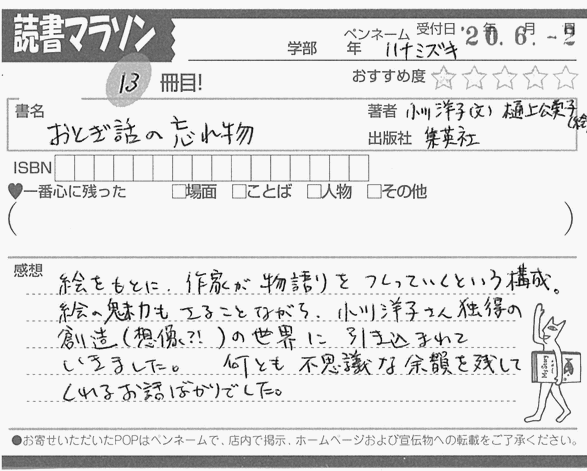 読書マラソン
学部 年 ペンネーム ハナミズキ 受付日 '20.6.-2 年 月 日
13 冊目! おすすめ度 ☆☆☆☆☆
書名 おとぎ話の忘れ物
著者 小川洋子(文) 樋上公実子(絵)
出版社 集英社
ISBN
♥一番心に残った □場面 □ことば □人物 □その他
( )
感想
絵をもとに、作家が物語りをつくっていくという構成。
絵の魅力もさることながら、小川洋子さん独得の
創造(想像?!)の世界に引き込まれて
いきました。 何とも不思議な余韻を残して
くれるお話ばかりでした。
●お寄せいただいたPOPはペンネームで、店内で掲示、ホームページおよび宣伝物への転載をご了承ください。